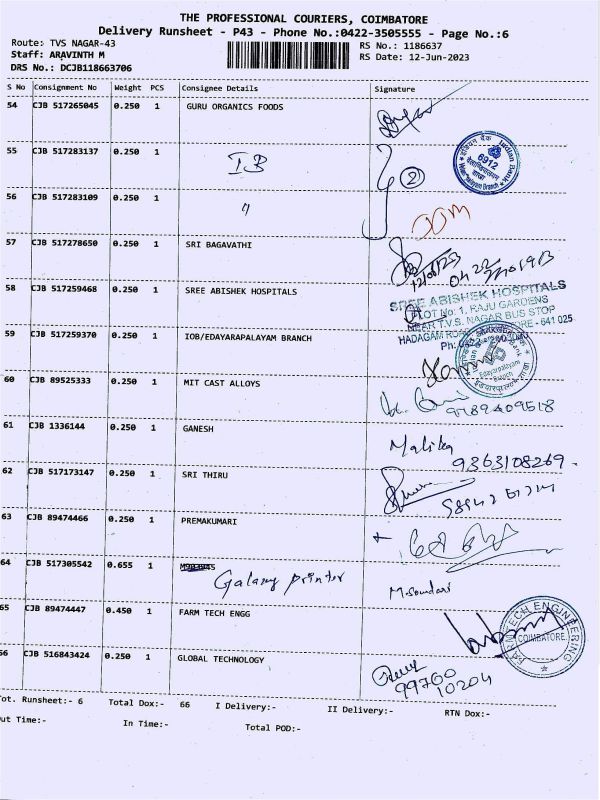 THE PROFESSIONAL COURIERS, COIMBATORE
Delivery Runsheet - P43 - Phone No.:0422-3505555 - Page No.:6
Route: TVS NAGAR-43
Staff: ARAVINTH M
DRS No.: DCJB118663706
RS No.: 1186637
RS Date: 12-Jun-2023
S No Consignment No Weight PCS Consignee Details Signature
54 CJB 517265045 0.250 1 GURU ORGANICS FOODS
55 CJB 517283137 0.250 1 IB
2
6912
Indian Bank
56 CJB 517283109 0.250 1 "
57 CJB 517278650 0.250 1 SRI BAGAVATHI
58 CJB 517259468 0.250 1 SREE ABISHEK HOSPITALS
SREE ABISHEK HOSPITALS
PLOT No: 1, RAJU GARDENS
NEAR T.V.S. NAGAR BUS STOP
59 CJB 517259370 0.250 1 IOB/EDAYARAPALAYAM BRANCH
Edayarpalayam
Branch
60 CJB 89525333 0.250 1 MIT CAST ALLOYS
9789409518
61 CJB 1336144 0.250 1 GANESH
Malika
9363108269
62 CJB 517173147 0.250 1 SRI THIRU
63 CJB 89474466 0.250 1 PREMAKUMARI
64 CJB 517305542 0.655 1
Galaxy printer
M. Soundari
65 CJB 89474447 0.450 1 FARM TECH ENGG
FARM TECH ENGINEERING
COIMBATORE
66 CJB 516843424 0.250 1 GLOBAL TECHNOLOGY
99760
10204
Tot. Runsheet:- 6 Total Dox:- 66 I Delivery:- II Delivery:- RTN Dox:-
Out Time:- In Time:- Total POD:-